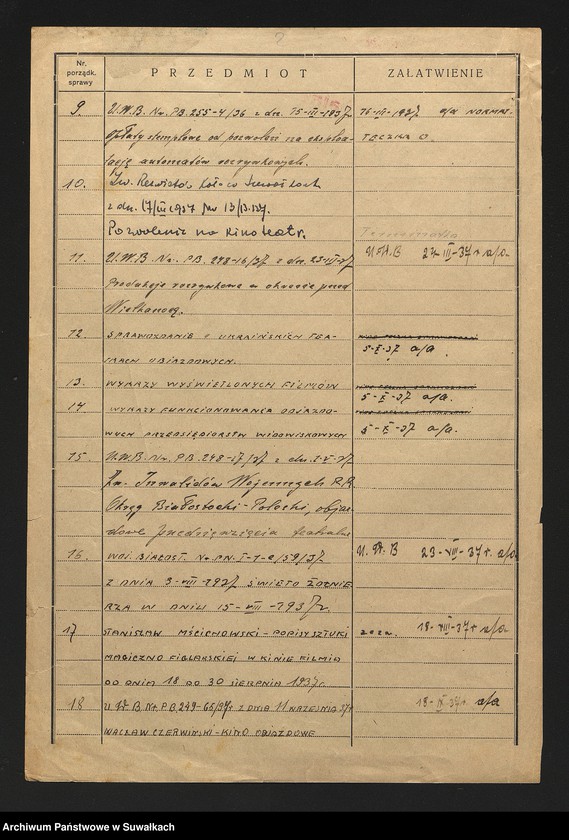 Nr. porządk. sprawy
PRZEDMIOT
ZAŁATWIENIE
9. U.W.B. Nr. PB.255-4/36 z dn. 15-III-1937 16-III-1937 a/a NORMAT.
opłaty stemplowe od pozwoleń na eksploa- TECZKA O.
tację automatów rozrywkowych.
10. Zw. Rezerwistów Koło w Suwałkach
z dn. 17/III 1937 Nr 13/B.37.
Pozwolenie na kino teatr.
11. U.W.B. Nr. PB. 248-16/37 z dn. 23-III-37 U.W.B 24-III-37 r a/a.
Produkcje rozrywkowe w okresie przed
Wielkanocą.
12 SPRAWOZDANIE O UKRAIŃSKICH TEA-
TRACH OBJAZDOWYCH. 5-X-37 a/a.
13. WYKAZY WYŚWIETLONYCH FILMÓW 5-X-37 a/a.
14 WYKAZY FUNKCJONOWANIA OBJAZDO-
WYCH PRZEDSIĘBIORSTW WIDOWISKOWYCH 5-X-37 a/a.
15. U.W.B. Nr. PB.248-17/37 z dn. 1-V-37
Zw. Inwalidów Wojennych R.P.
Okręg Białostocki-Poleski, objaz-
dowe przedsięwzięcia teatralne
16. WOJ. BIAŁOST. Nr. PN. I-1-e/59/37 U.W.B 23-VIII-37 r. a/a
Z DNIA 3-VIII-1937 ŚWIĘTO ŻOŁNIE
RZA W DNIU 15-VIII-1937 r.
17 STANISŁAW MŚCICHOWSKI-POPISY SZTUKI 18-VIII-37 r a/a
MAGICZNO FIGLARSKIEJ W KINIE FILMIA
OD DNIA 18 DO 30 SIERPNIA 1937 r.
18 U.W.B. Nr. PB.249-65/37 r Z DNIA 11 WRZEŚNIA 37 r 18-IX-37 r. a/a
WACŁAW CZERWIŃSKI-KINO OBJAZDOWE
Archiwum Państwowe w Suwałkach